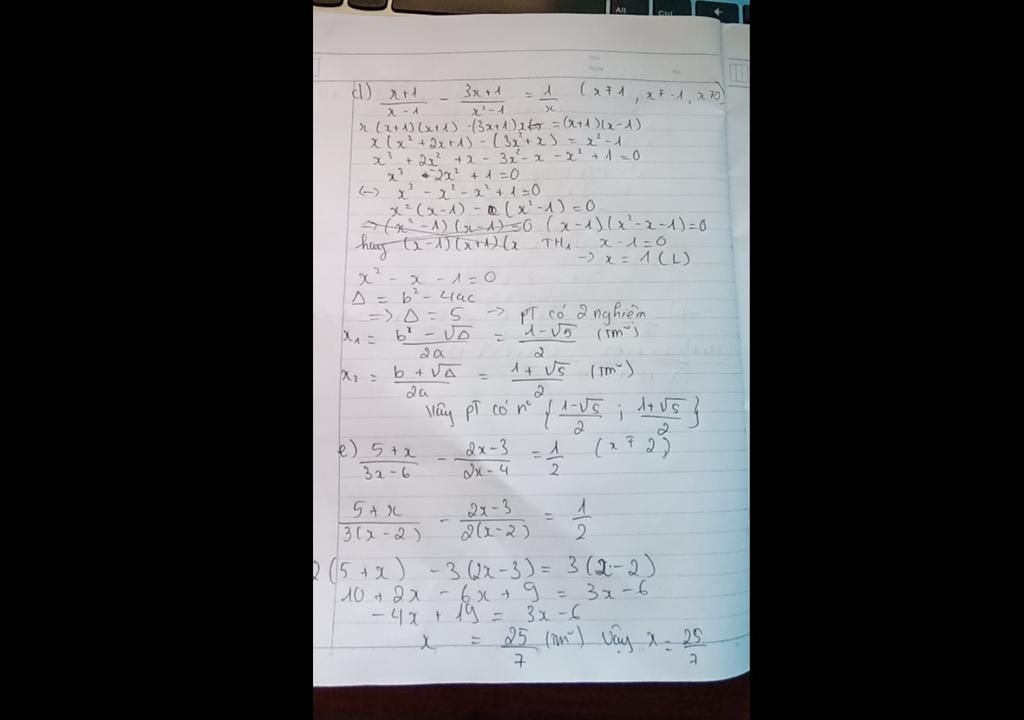 Alt Ctrl
d) (x+1)/(x-1) - (3x+1)/(x²-1) = 1/x (x ≠ 1, x ≠ -1, x ≠ 0)
x(x+1)(x+1) - (3x+1)x = (x+1)(x-1)
x(x²+2x+1) - (3x²+x) = x²-1
x³ + 2x² + x - 3x² - x - x² + 1 = 0
x³ - 2x² + 1 = 0
<-> x³ - x² - x² + 1 = 0
x²(x-1) - (x²-1) = 0
=> (x²-1)(x-1) = 0 (x-1)(x²-x-1) = 0
hay (x-1)(x+1)(x TH1: x-1=0
-> x = 1 (L)
x² - x - 1 = 0
Δ = b² - 4ac
=> Δ = 5 -> PT có 2 nghiệm
x₁ = (b² - √Δ)/2a = (1-√5)/2 (Tm²)
x₂ = (b + √Δ)/2a = (1+√5)/2 (Tm²)
Vậy PT có n² {(1-√5)/2 ; (1+√5)/2}
e) (5+x)/(3x-6) - (2x-3)/(2x-4) = 1/2 (x ≠ 2)
(5+x)/(3(x-2)) - (2x-3)/(2(x-2)) = 1/2
2(5+x) - 3(2x-3) = 3(x-2)
10 + 2x - 6x + 9 = 3x - 6
-4x + 19 = 3x - 6
x = 25/7 (Tm²) Vậy x = 25/7